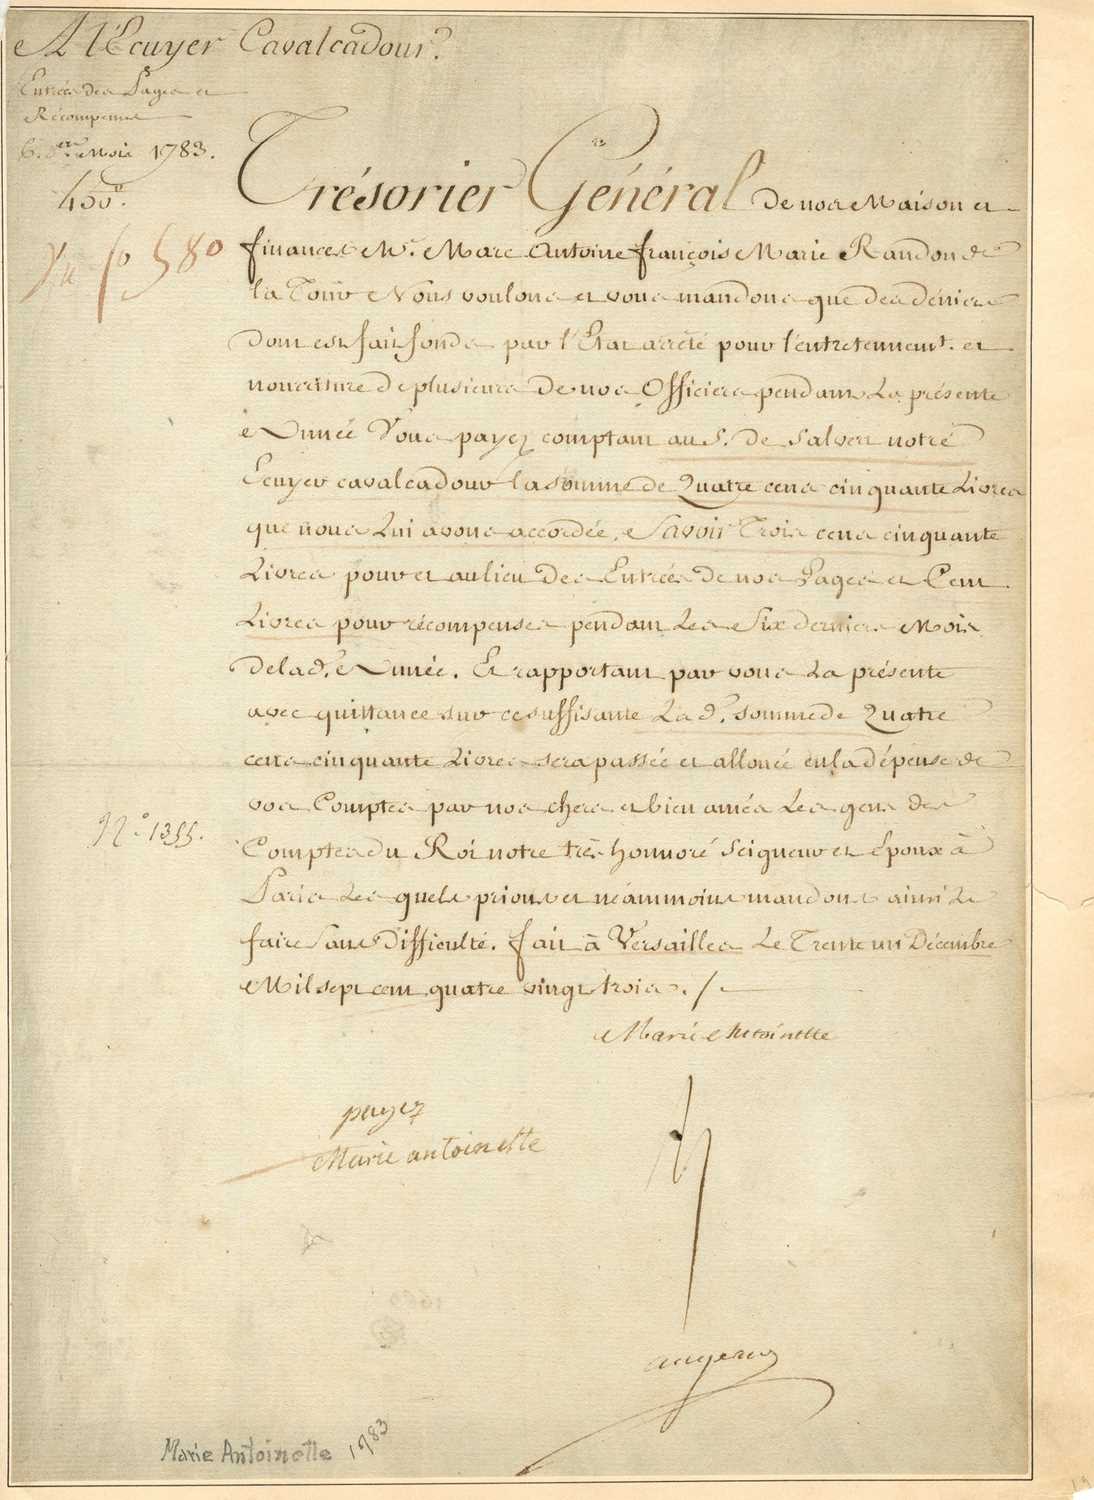 A l'Ecuyer Cavalcadour.
Entrées des Pages et
Récompenses
6. ers Mois 1783.
450.
fo 580
Trésorier Général De nos Maison et
finances Mr. Marc Antoine françois Marie Randon de
la Tour Nous voulons et vous mandons que des deniers
dont est fait fonds par l'Etat arrêté pour l'entretenement. et
nourriture de plusieurs de nos Officiers pendant La présente
Année Vous payez comptant au S. de Salvert notre
Ecuyer cavalcadour la somme de Quatre cens cinquante Livres
que nous Lui avons accordée, Savoir Trois cens cinquante
Livres pour et au lieu des Entrées de nos Pages et Cent
Livres pour récompenses pendant Les Six derniers Mois
de la d.e Année. Et rapportant par vous La présente
avec quittance sur ce suffisante La d.e somme de Quatre
cens cinquante Livres sera passée et allouée en la dépense de
vos Comptes par nos chers et bien amés Les gens des
Comptes du Roi notre très honnoré Seigneur et Epoux à
N.o 1355.
Paris Les quels prions et néammoins mandons ainsi Le
faire Sans Difficulté. fait à Versailles Le Trente un Décembre
Mil sept cent quatre vingt trois. /.
Marie Antoinette
payez
Marie antoinette
augeard
Marie Antoinette 1783